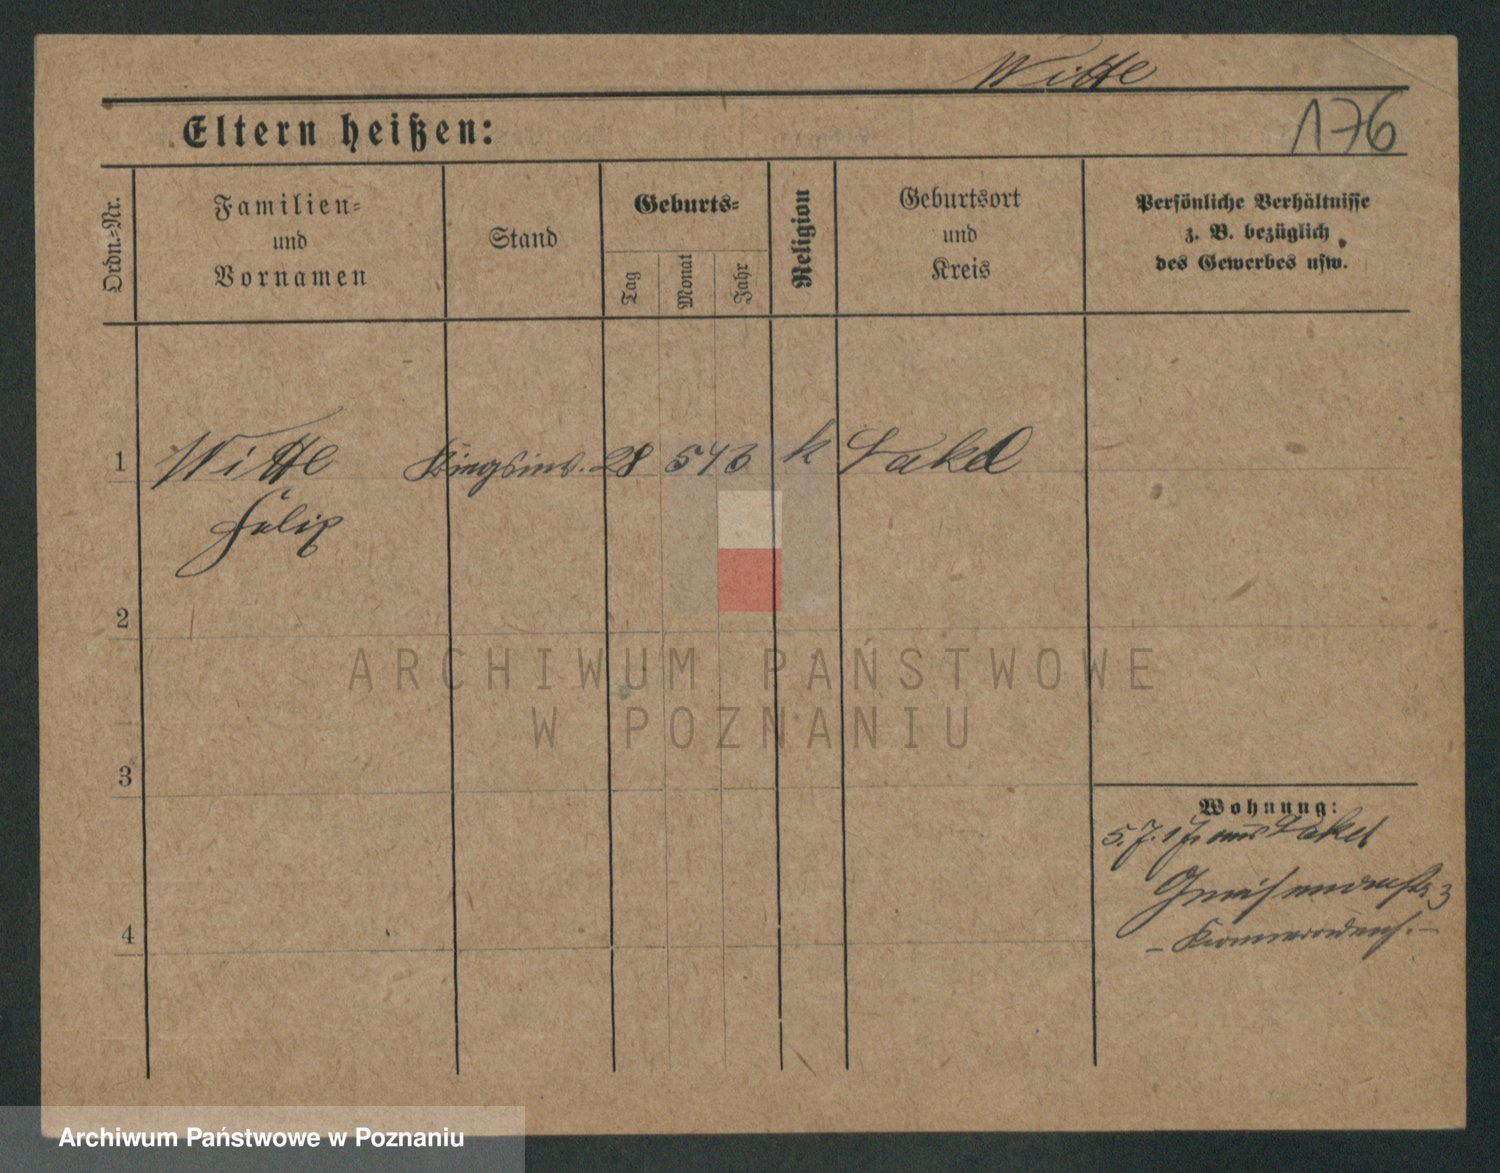 Witte
176
Eltern heißen:
Ordn.-Nr.
Familien-
und
Vornamen
Stand
Geburts-
Tag
Monat
Jahr
Religion
Geburtsort
und
Kreis
Persönliche Verhältnisse
z. B. bezüglich
des Gewerbes usw.
1
Witte
28
5
k
Felix
2
ARCHIWUM PAŃSTWOWE
W POZNANIU
3
Wohnung:
5. 7. aus
4
Archiwum Państwowe w Poznaniu